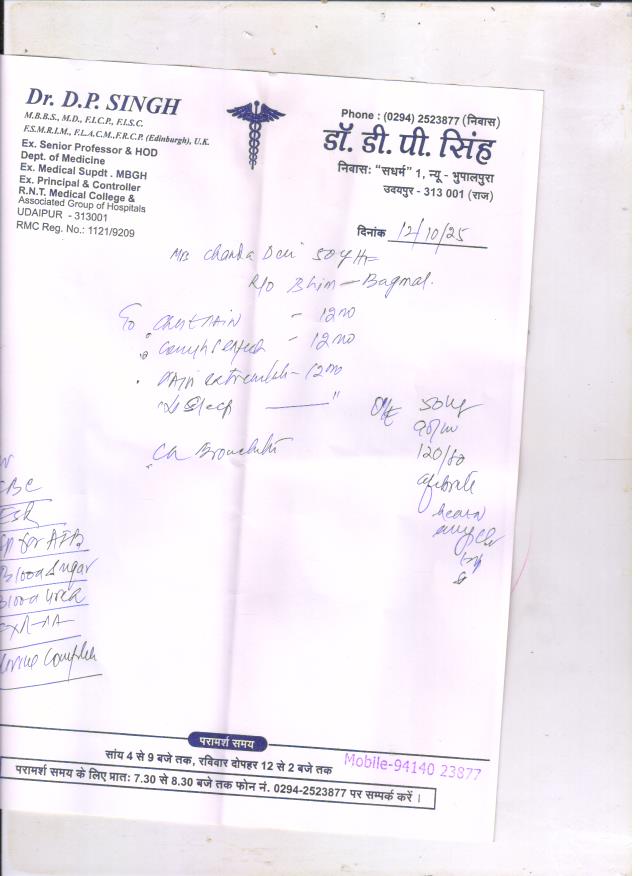 Dr. D.P. SINGH
M.B.B.S., M.D., F.I.C.P., F.I.S.C.
F.S.M.R.I.M., F.L.A.C.M., F.R.C.P. (Edinburgh), U.K.
Ex. Senior Professor & HOD
Dept. of Medicine
Ex. Medical Supdt. MBGH
Ex. Principal & Controller
R.N.T. Medical College &
Associated Group of Hospitals
UDAIPUR - 313001
RMC Reg. No.: 1121/9209
Phone : (0294) 2523877 (निवास)
डॉ. डी. पी. सिंह
निवास: "सधर्म" 1, न्यू - भुपालपुरा
उदयपुर - 313 001 (राज)
दिनांक 12/10/25
Chanda Devi 50 y
R/o Bhim - Bagmal.
- 12 mo
- 12 mo
Pain - 12 mo
↓ Sleep "
Ch Bronchitis
O/E 50 kg
90/m
120/80
afebrile
CBC
ESR
Sp for AFB
Blood Sugar
Blood Urea
CXR-PA
Urine Complete
परामर्श समय
सांय 4 से 9 बजे तक, रविवार दोपहर 12 से 2 बजे तक
Mobile-94140 23877
परामर्श समय के लिए प्रात: 7.30 से 8.30 बजे तक फोन नं. 0294-2523877 पर सम्पर्क करें ।